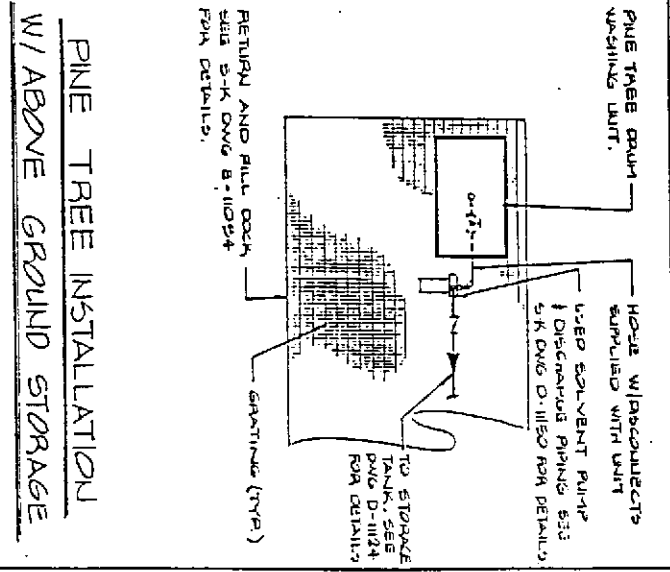 PINE TREE DRUM
WASHING UNIT.
HOSE W/DISCONNECTS
SUPPLIED WITH UNIT
USED SOLVENT PUMP
& DISCHARGE PIPING SEE
S-K DWG D-11150 FOR DETAILS.
TO STORAGE
TANK, SEE
DWG D-11124
FOR DETAILS
GRATING (TYP.)
RETURN AND FILL DOCK
SEE S-K DWG B-11054
FOR DETAILS.
PINE TREE INSTALLATION
W/ ABOVE GROUND STORAGE